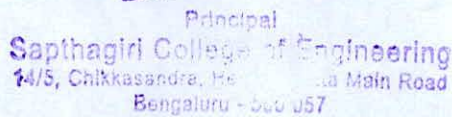 Principal
Sapthagiri College of Engineering
14/5, Chikkasandra, Main Road
Bengaluru - 057